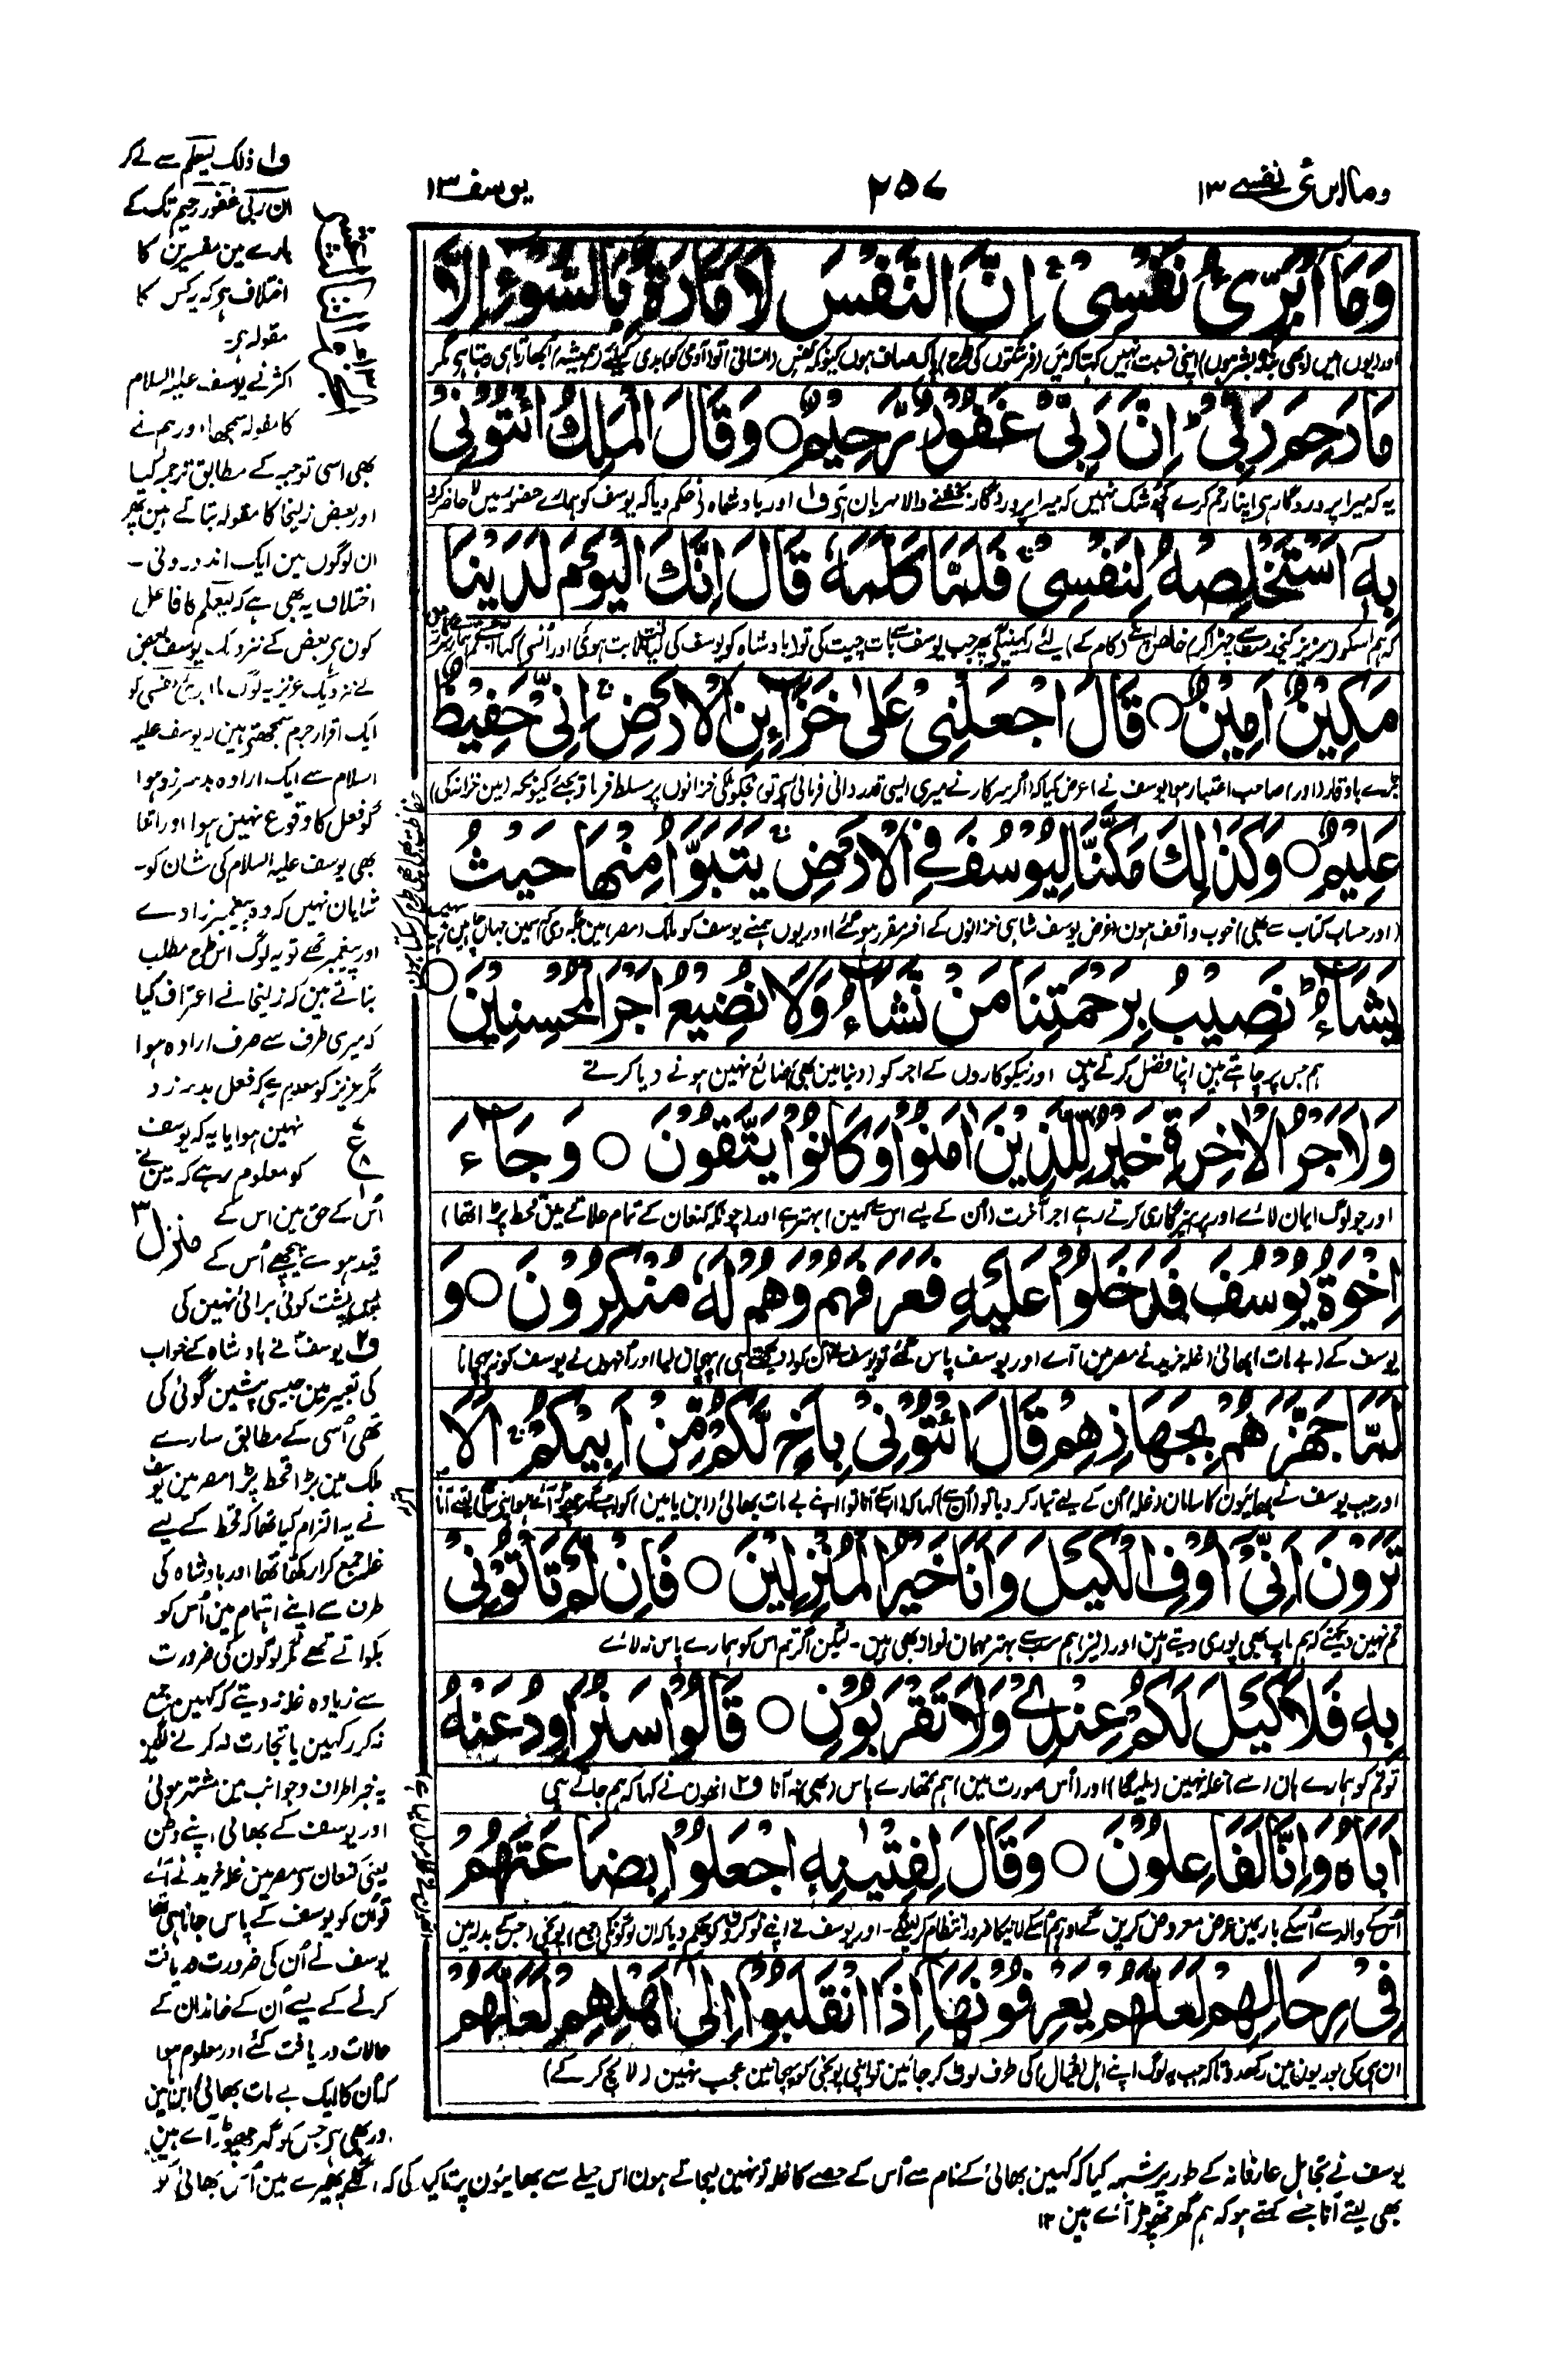 وما ابرئ نفسی ۱۳
۲۵۷
یوسف ۱۳
وَمَآ اُبَرِّئُ نَفْسِیْ ۚ اِنَّ النَّفْسَ لَاَمَّارَةٌۢ بِالسُّوْٓءِ اِلَّا
اور یوں میں (بھی بشر ہوں) اپنی نسبت نہیں کہتا کہ میں (فرشتوں کی طرح) پاک صاف ہوں کیونکہ نفس (انسانی تو) آدمی کو بدی کے لئے (ہمیشہ) ابھارتا ہی رہتا ہے مگر
مَا رَحِمَ رَبِّیْ ؕ اِنَّ رَبِّیْ غَفُوْرٌ رَّحِیْمٌ ○ وَقَالَ الْمَلِكُ ائْتُوْنِیْ
یہ کہ میرا پروردگار ہی اپنا رحم کرے کچھ شک نہیں کہ میرا پروردگار بخشنے والا مہربان ہی ف۱ اور بادشاہ نے حکم دیا کہ یوسف کو ہمارے حضور میں لا حاضر کرو
بِهٖٓ اَسْتَخْلِصْهُ لِنَفْسِیْ ۚ فَلَمَّا كَلَّمَهٗ قَالَ اِنَّكَ الْیَوْمَ لَدَیْنَا
کہ ہم اسکو خاص اپنے (کام کے) لیے رکھینگے پھر جب یوسف سے بات چیت کی تو بادشاہ کو یوسف کی ثابت ہوئی اور اسنے کہا
مَكِیْنٌ اَمِیْنٌ ○ قَالَ اجْعَلْنِیْ عَلٰی خَزَآىِٕنِ الْاَرْضِ ۚ اِنِّیْ حَفِیْظٌ
بڑے باوقار (اور) صاحب اعتبار ہو یوسف نے (عرض کیا کہ اگر سرکار نے میری ایسی قدردانی فرمائی ہے تو) مجکو ملکی خزانوں پر مسلط فرما دیجئے کیونکہ (میں خزانہ کی)
عَلِیْمٌ ○ وَكَذٰلِكَ مَكَّنَّا لِیُوْسُفَ فِی الْاَرْضِ ۚ یَتَبَوَّاُ مِنْهَا حَیْثُ
(اور حساب کتاب سے بھی) خوب واقف ہون (غرض یوسف شاہی خزانوں کے افسر مقرر ہو گئے) اور یوں ہمنے یوسف کو ملک (مصر) میں جگہ دی کہ اسمیں جہاں چاہیں رہیں
یَشَآءُ ؕ نُصِیْبُ بِرَحْمَتِنَا مَنْ نَّشَآءُ وَلَا نُضِیْعُ اَجْرَ الْمُحْسِنِیْنَ ○
ہم جس پر چاہتے ہین اپنا فضل کرتے ہین اور نیکوکاروں کے اجر کو (دنیا مین بھی) ضائع نہین ہونے دیا کرتے
وَلَاَجْرُ الْاٰخِرَةِ خَیْرٌ لِّلَّذِیْنَ اٰمَنُوْا وَكَانُوْا یَتَّقُوْنَ ○ وَجَآءَ
اور جو لوگ ایمان لائے اور پرہیزگاری کرتے رہے اجر آخرت (ان کے لیے اس سے کہین) بہتر ہے اور (چونکہ کنعان کے تمام علاقے مین قحط پڑا تھا)
اِخْوَةُ یُوْسُفَ فَدَخَلُوْا عَلَیْهِ فَعَرَفَهُمْ وَهُمْ لَهٗ مُنْكِرُوْنَ ○ وَ
یوسف کے (بے مات) بھائی (غلہ خریدنے مصر مین) آے اور یوسف پاس گئے تو یوسف نے ان کو (دیکھتے ہی) پہچان لیا اور انہوں نے یوسف کو نہ پہچانا
لَمَّا جَهَّزَهُمْ بِجَهَازِهِمْ قَالَ ائْتُوْنِیْ بِاَخٍ لَّكُمْ مِّنْ اَبِیْكُمْ ۚ اَلَا
اور جب یوسف نے بھائیوں کا سامان (غلہ) ان کے لیے تیار کر دیا تو (ان سے) کہا کہ (اب کے آنا تو) اپنے بے مات بھائی (ابن یامین) کو اپنے ساتھ لیتے آنا
تَرَوْنَ اَنِّیْٓ اُوْفِی الْكَیْلَ وَاَنَا خَیْرُ الْمُنْزِلِیْنَ ○ فَاِنْ لَّمْ تَاْتُوْنِیْ
تم نہین دیکھتے کہ ہم ناپ بھی پوری دیتے ہین اور (نیز) ہم سب سے بہتر مہمان نواز بھی ہین - لیکن اگر تم اس کو ہمارے پاس نہ لائے
بِهٖ فَلَا كَیْلَ لَكُمْ عِنْدِیْ وَلَا تَقْرَبُوْنِ ○ قَالُوْا سَنُرَاوِدُ عَنْهُ
تو تم کو ہمارے ہان (سے) غلہ نہین (ملیگا) اور (اس صورت مین) ہم تمھارے پاس (بھی) نہ آنا ف۲ انھون نے کہا کہ ہم جاتے ہی
اَبَاهُ وَاِنَّا لَفَاعِلُوْنَ ○ وَقَالَ لِفِتْیٰنِهِ اجْعَلُوْا بِضَاعَتَهُمْ
اُس کے والد سے اُسکے بارہمین عرض معروض کرین گے اور ہم اسکے لانیکا ضرور انتظام کرینگے - اور یوسف نے اپنے نوکروں کو حکم دیا کہ ان لوگوں کی (جمع) پونجی (جسکے بدلہ مین
فِیْ رِحَالِهِمْ لَعَلَّهُمْ یَعْرِفُوْنَهَآ اِذَا انْقَلَبُوْٓا اِلٰٓی اَهْلِهِمْ لَعَلَّهُمْ
ان ہی کی بوریوں مین رکھدو تاکہ جب یہ لوگ اپنے اہل (عیال) کی طرف لوٹ کر جائین تو اپنی پونجی کو پہچانین عجب نہین (لالچ کر کے)
ف۱ ذلک لیعلم سے لے کر
ان ربی غفور رحیم تک کے
بارے مین مفسرین کا
اختلاف ہی کہ یہ کس کا
مقولہ ہی۔
اکثر نے یوسف علیہ السلام
کا مقولہ سمجھا اور ہم نے
بھی اسی توجیہ کے مطابق ترجمہ کیا
اور بعض زلیخا کا مقولہ بتاتے ہین پھر
ان لوگوں مین ایک اندرونی -
اختلاف یہ بھی ہے کہ لیعلم کا فاعل
کون ہی بعض کے نزدیک یوسف بعض
کے نزدیک عزیز یہ لوگ ما ابرئ نفسی کو
ایک اقرار جرم سمجھتے ہین یوسف علیہ
السلام سے ایک ارادہ بد سرزد ہوا
گو فعل کا وقوع نہین ہوا اور اتنا
بھی یوسف علیہ السلام کی شان کو -
شایان نہین کہ وہ پیغمبر زادے
اور پیغمبر تھے تو یہ لوگ اس طرح مطلب
بناتے ہین کہ زلیخا نے اعتراف کیا
کہ میری طرف سے صرف ارادہ ہوا
مگر عزیز کو معلوم رہے کہ فعل بد سرزد
نہین ہوا یا یہ کہ یوسف
کو معلوم رہے کہ مین نے
اُس کے حق مین اس کے
قید ہوے پیچھے اُس کے
پس پشت کوئی برائی نہین کی
منزل ۳
ف۲ یوسف نے بادشاہ کے خواب
کی تعبیر مین جیسی پیشین گوئی کی
تھی اُسی کے مطابق سارے
ملک مین بڑا قحط پڑا مصر مین یوسف
نے یہ التزام کیا تھا کہ قحط کے لیے
غلہ جمع کرا رکھا تھا اور بادشاہ کی
طرف سے اپنے اہتمام مین اُس کو
بکواتے تھے مگر لوگون کی ضرورت
سے زیادہ غلہ نہ دیتے کہ کہین جمع
نہ کر رکہین یا تجارت نہ کرنے لگین
یہ خبر اطراف و جوانب مین مشتہر ہوئی
اور یوسف کے بھائی اپنے وطن
یعنی کنعان سے مصر مین غلہ خریدنے آئے
تو ان کو یوسف کے پاس جانا ہی تھا
یوسف نے اُن کی ضرورت دریافت
کرنے کے لیے اُن کے خاندان کے
حالات دریافت کئے اور معلوم ہوا
کہ اُن کا ایک بے مات بھائی ابن یامین
اور بھی ہی جس کو گھر چھوڑ آے ہین
یوسف نے تجاہل عارفانہ کے طور پر شبہہ کیا کہ کہین بھائی کے نام سے اُس کے حصے کا غلہ تو نہین لیجاتے ہون اس حیلے سے بھائیون پر تاکید کی کہ اگلے پھیرے مین اُس بھائی کو
بھی لیتے آنا جسے کہتے ہو کہ ہم گھر چھوڑ آئے ہین ۱۲